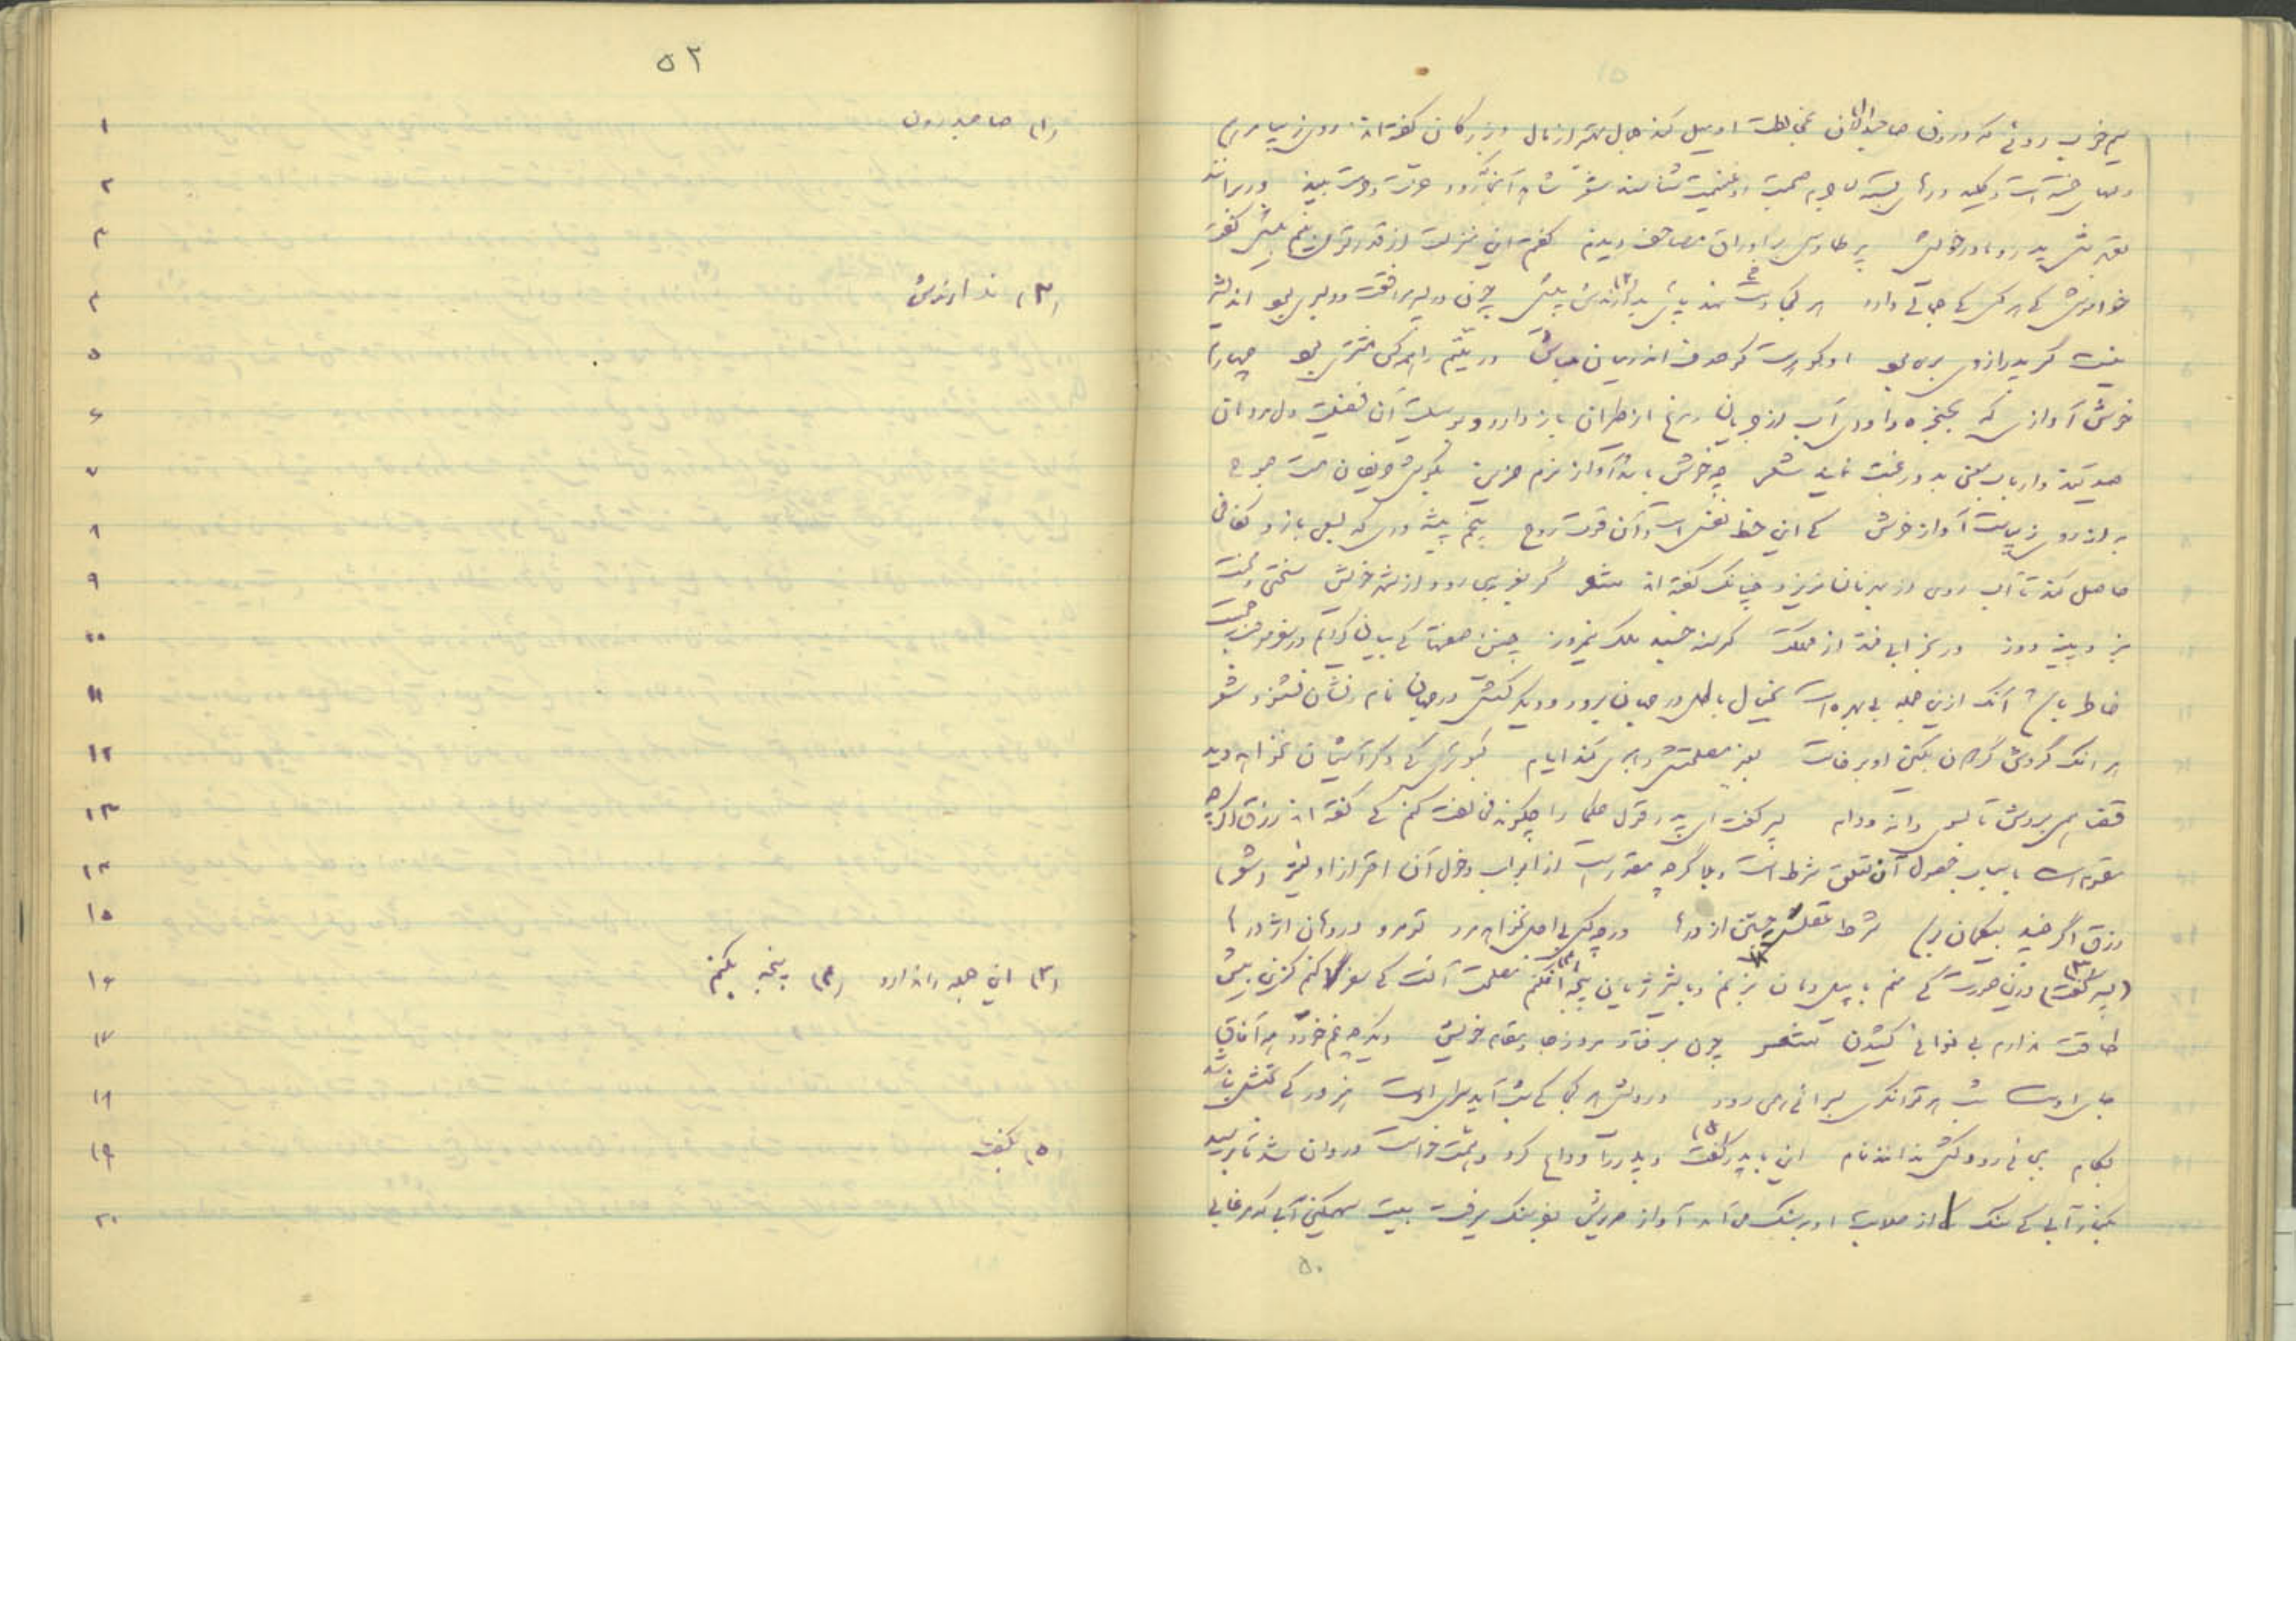 سیم خوب روئے که درون صاحبدلان بمخالطت او میل کند جمال بهتر از مال و بزرگان گفته اند روی زیبا مرهم
دلهای خسته است و کلید درهای بسته لاجرم صحبت او غنیمت شناسند شعر شاهد آنجا که رود حرمت و عزت بیند ور برانند
بقهرش پدر و مادر خویش پر طاوس بر اوراق مصاحف دیدم گفتم این منزلت از قدر تو می بینم بیش گفت
خاموش که هر کس که جمالے دارد هر کجا پای نهد دست ندارندش پیش چون در پسر موافقت و دلبری بود اندیشه
نیست گر پدر از وی بری بود او گوهرست گو صدف اندر میان مباش در یتیم را همه کس مشتری بود چهارم
خوش آوازی که بحنجره داودی آب از جریان و مرغ از طیران باز دارد و بوسیلت آن فضیلت دل مردمان
صید کند و ارباب معنی بدو رغبت نمایند شعر چه خوش باشد آواز نرم حزین بگوش حریفان مست صبوح
به از روی زیباست آواز خوش که این حظ نفس است و آن قوت روح پنجم پیشه وری که بسعی بازو کفافی
حاصل کند تا آب روی از بهر نان نریزد چنانک گفته اند شعر گر بغریبی رود از شهر خویش سختی و محنت
نبرد پینه دوز ور بخرابی فتد از مملکت گرسنه خسبد ملک نیمروز چنین صفتها که بیان کردم در سفر موجب جمعیت
خاطر باشد آنک ازین جمله بی بهره است بخیال باطل در جهان برود و دیگر کسش در جهان نام و نشان نشنود شعر
هر انک گردش گردون بکین او برخاست بغیر مصلحتش رهبری کند ایام کبوتری که دگر آشیان نخواهد دید
قضا همی بردش تا بسوی دانه و دام پسر گفت ای پدر قول حکما را چگونه مخالفت کنم که گفته اند رزق اگرچه
مقسوم است باسباب حصول آن تعلق شرط است و بلا اگرچه مقدورست از ابواب دخول آن احتراز اولیتر (شعر)
رزق اگر چند بیگمان برسد شرط عقلست جستن از درها ورچه کس بی اجل نخواهد مرد تو مرو در دهان اژدرها
(پسر گفت) (۳) درین صورت که منم با پیل دمان بزنم و با شیر ژیان پنجه افکنم (۴) مصلحت آنست که سفر کنم کزین بیش
طاقت ندارم بی نوائی کشیدن شعر چون مرد فتاد مرد ز جا و مقام خویش دیگر چه غم خورد همه آفاق
جای اوست شب هر توانگری بسرائی همی رود درویش هر کجا که شب آید سرای اوست
بکام این با پدر گفت (۵) و پدر را وداع کرد و همت خواست و روان شد تا برسید
بکنار آبی که سنگ از صلابت او بر سنگ می آمد آواز خروش بفرسنگ میرفت بیت سهمگین آبی که مرغابی
۵۰
۵۲
۱ (۱) صاحبدردون
۲
۳
۴ (۲) ندارندش
۵
۶
۷
۸
۹
۱۰
۱۱
۱۲
۱۳
۱۴
۱۵
۱۶ (۳) این جمله را ندارد (۴) پنجه بکنم
۱۷
۱۸
۱۹ (۵) بگفت
۲۰